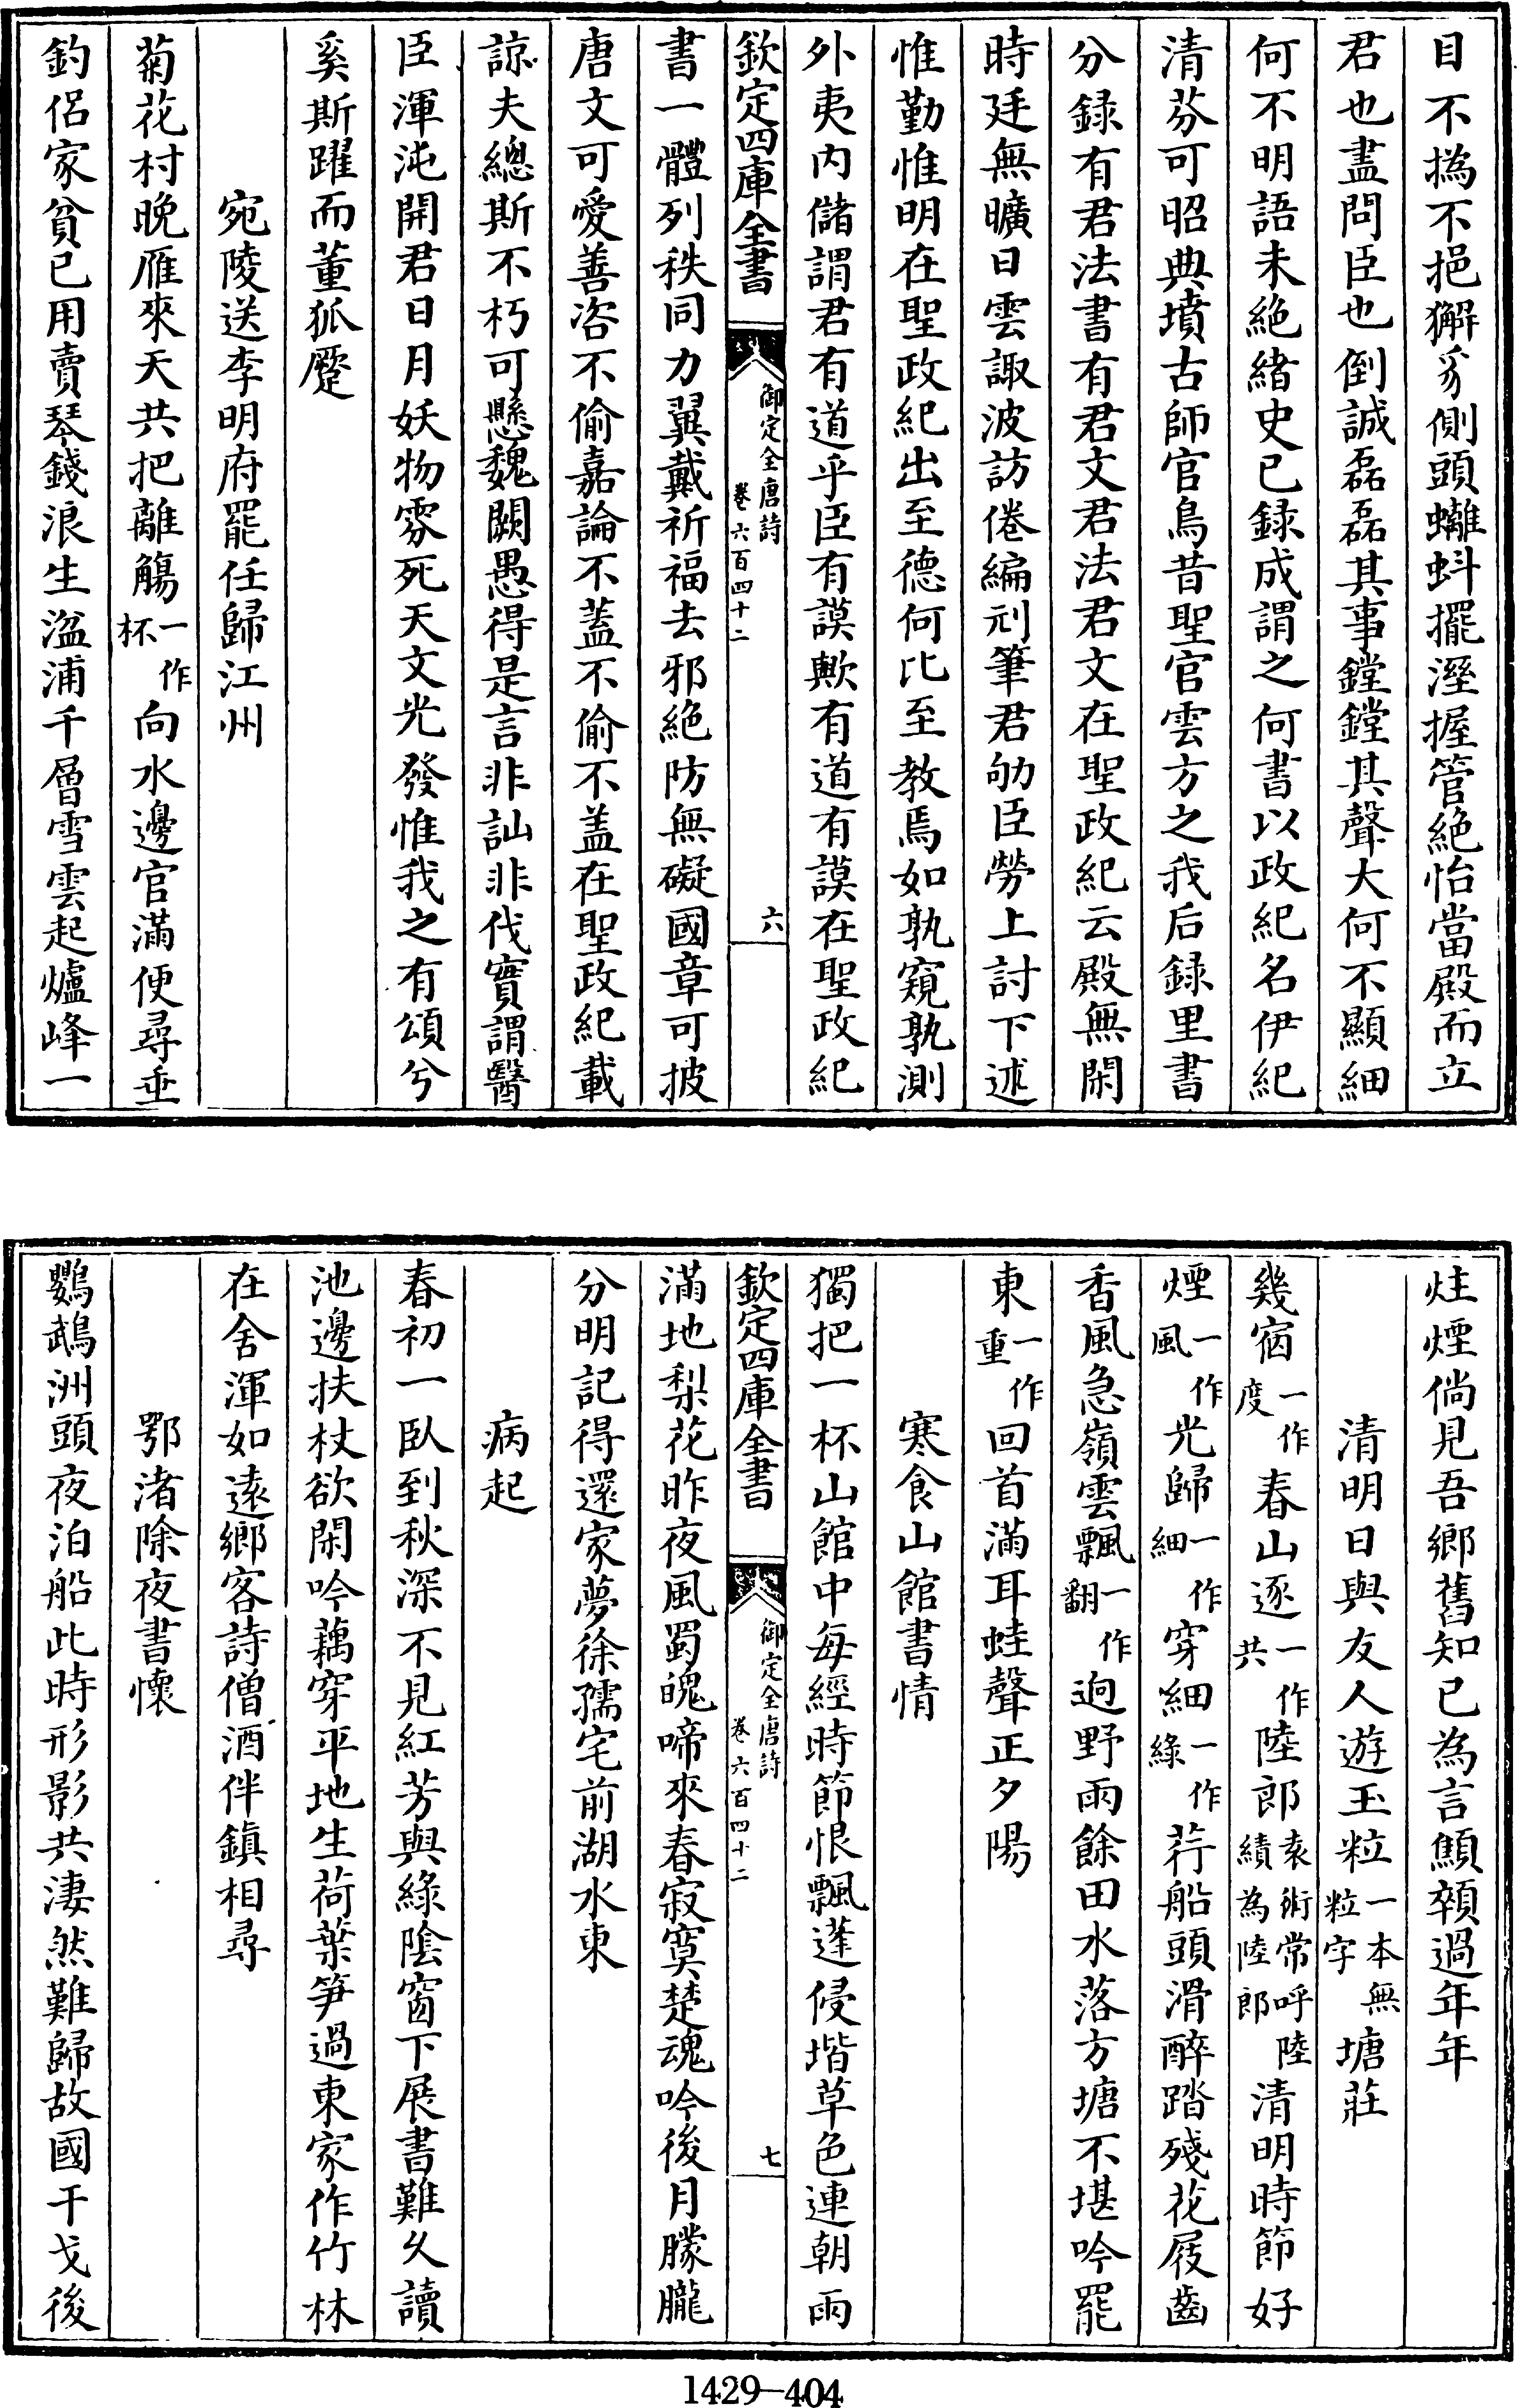 目不撝不挹獬豸側頭蠵蚪擺溼握管絶怡當殿而立
君也盡問臣也倒誠磊磊其事鏜鏜其聲大何不顯細
何不明語未絶緒史已録成謂之何書以政紀名伊紀
清芬可昭典墳古師官鳥昔聖官雲方之我后録里書
分録有君法書有君文君法君文在聖政紀云殿無閑
時廷無曠日雲諏波訪倦編刓筆君劬臣勞上討下述
惟勤惟明在聖政紀出至德何比至教焉如孰窺孰測
外夷内儲謂君有道乎臣有謨歟有道有謨在聖政紀
欽定四庫全書 御定全唐詩 卷六百四十二 六
書一體列秩同力翼戴祈福去邪絶防無礙國章可披
唐文可愛善咨不偷嘉論不蓋不偷不盖在聖政紀載
諒夫總斯不朽可懸魏闕愚得是言非訕非伐實謂醫
臣渾沌開君日月妖物雰死天文光發惟我之有頌兮
奚斯躍而董狐蹷
宛陵送李明府罷任歸江州
菊花村晚雁來天共把離觴一作杯向水邊官滿便尋垂
釣侣家貧已用賣琴錢浪生湓浦千層雪雲起爐峰一
炷煙倘見吾鄉舊知已為言顦顇過年年
清明日與友人遊玉粒一本無粒字塘莊
幾宿一作度春山逐一作共陸郎袁術常呼陸績為陸郎清明時節好
煙一作風光歸一作細穿細一作綠荇船頭滑醉踏殘花屐齒
香風急嶺雲飄一作翻迥野雨餘田水落方塘不堪吟罷
東一作重回首滿耳蛙聲正夕陽
寒食山館書情
獨把一杯山館中每經時節恨飄蓬侵堦草色連朝雨
欽定四庫全書 御定全唐詩 卷六百四十二 七
滿地梨花昨夜風蜀魄啼來春寂寞楚魂吟後月朦朧
分明記得還家夢徐孺宅前湖水東
病起
春初一臥到秋深不見紅芳與綠陰窗下展書難久讀
池邊扶杖欲閑吟藕穿平地生荷葉笋過東家作竹林
在舍渾如遠鄉客詩僧酒伴鎮相尋
鄂渚除夜書懷
鸚鵡洲頭夜泊船此時形影共淒然難歸故國干戈後
1429—404